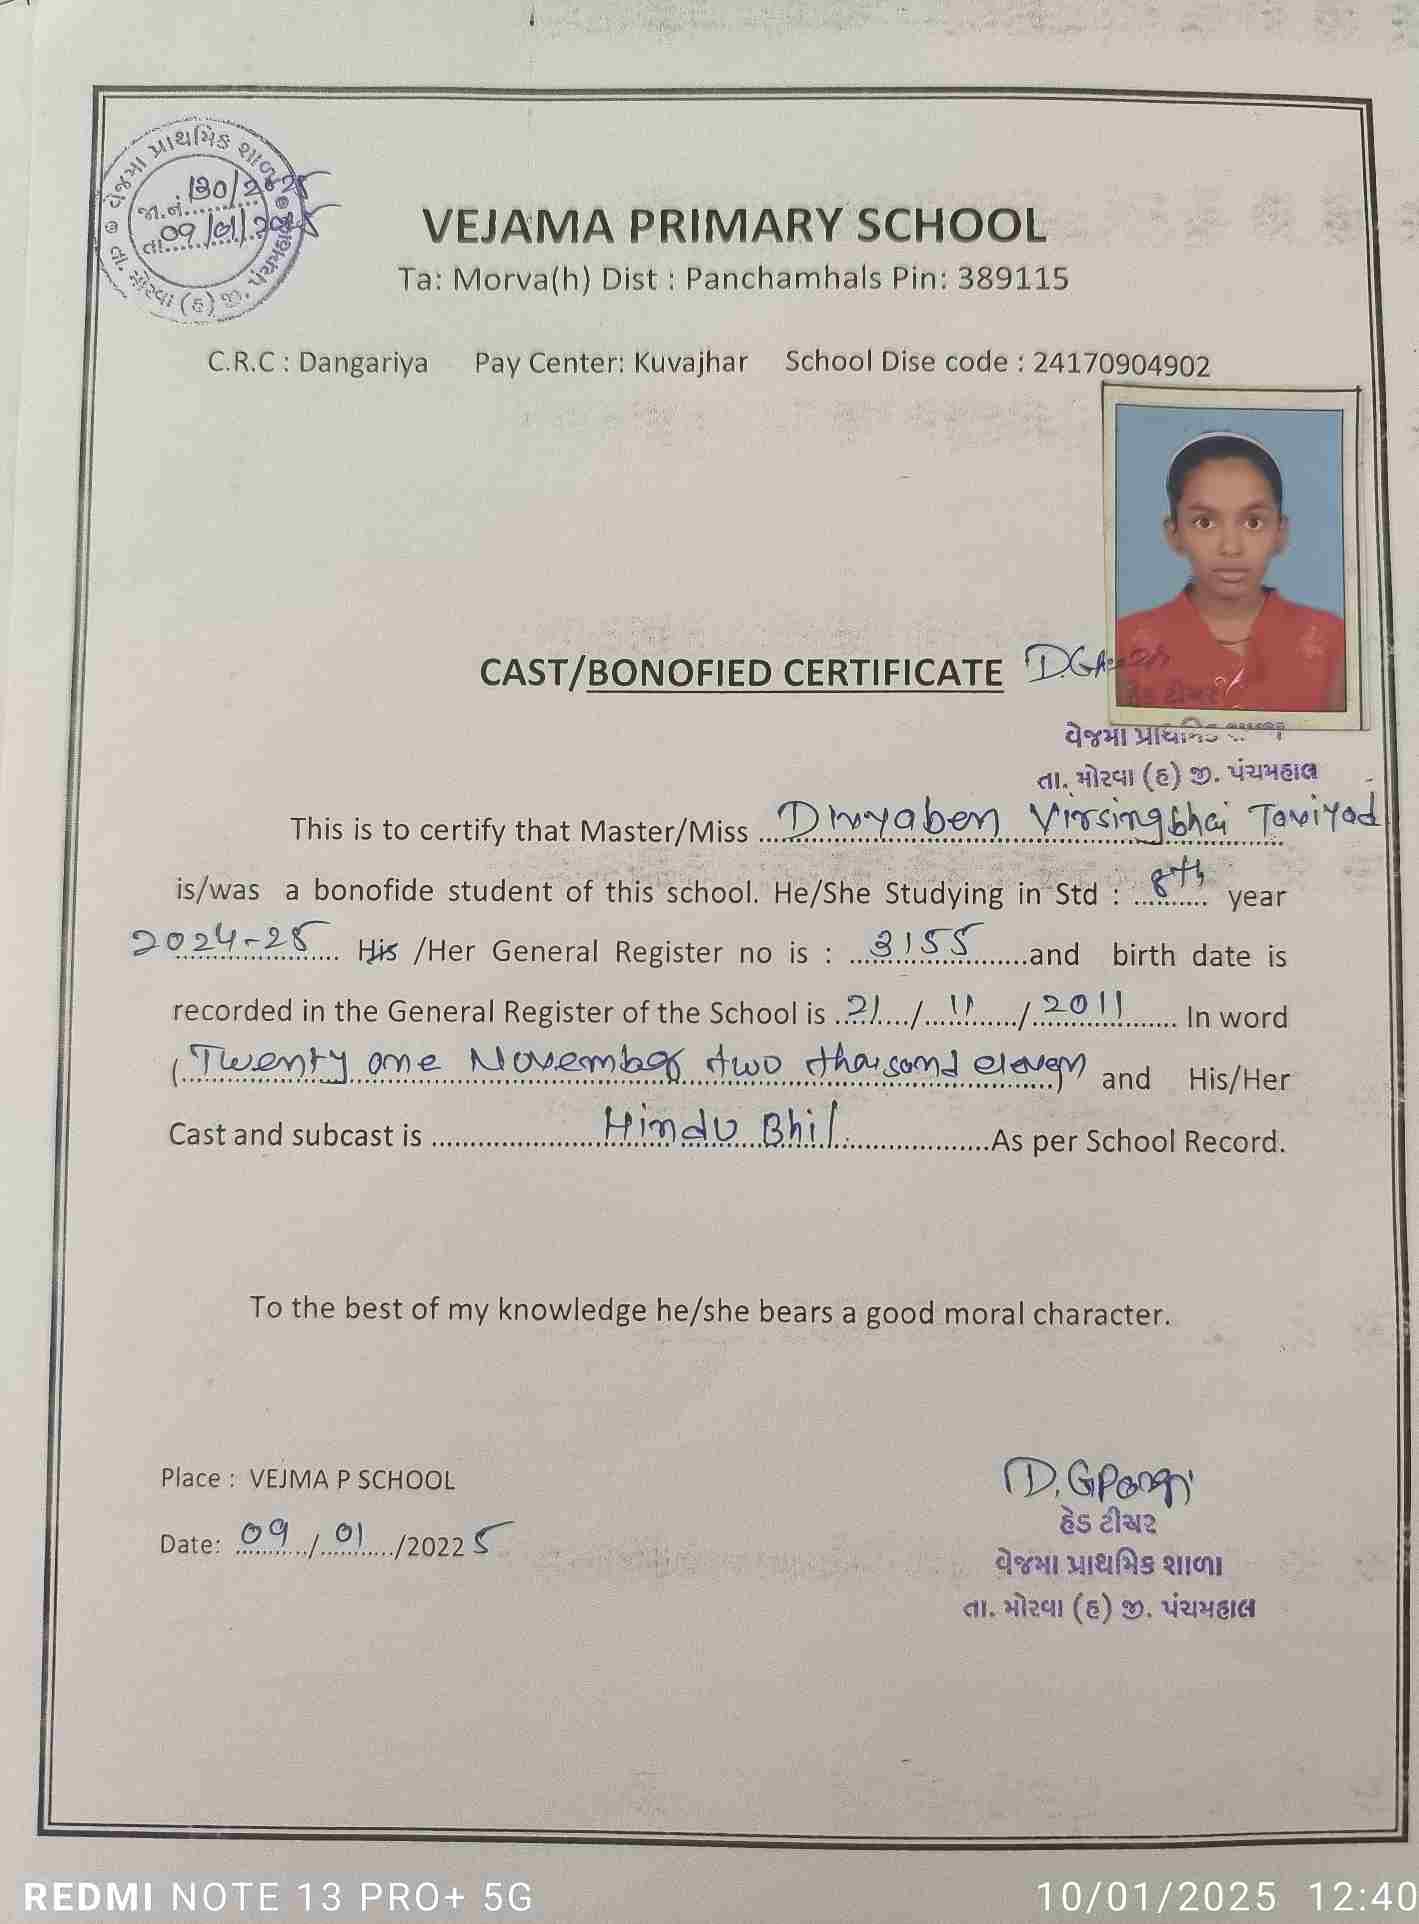 વેજમા પ્રાથમિક શાળા
જા.નં. 130/2025
તા. 09/01/2025
તા. મોરવા (હ) જી. પંચમહાલ
VEJAMA PRIMARY SCHOOL
Ta: Morva(h) Dist : Panchamhals Pin: 389115
C.R.C : Dangariya Pay Center: Kuvajhar School Dise code : 24170904902
CAST/BONOFIED CERTIFICATE
હેડ ટીચર
વેજમા પ્રાથમિક
તા. મોરવા (હ) જી. પંચમહાલ
This is to certify that Master/Miss Divyaben Virsingbhai Taviyad
is/was a bonofide student of this school. He/She Studying in Std : 8th year
2024-25 His /Her General Register no is : 3155 and birth date is
recorded in the General Register of the School is 21 / 11 / 2011 In word
(Twenty one November two thousand eleven) and His/Her
Cast and subcast is Hindu Bhil As per School Record.
To the best of my knowledge he/she bears a good moral character.
Place : VEJMA P SCHOOL
Date: 09 / 01 /2022 5
હેડ ટીચર
વેજમા પ્રાથમિક શાળા
તા. મોરવા (હ) જી. પંચમહાલ
REDMI NOTE 13 PRO+ 5G
10/01/2025 12:40